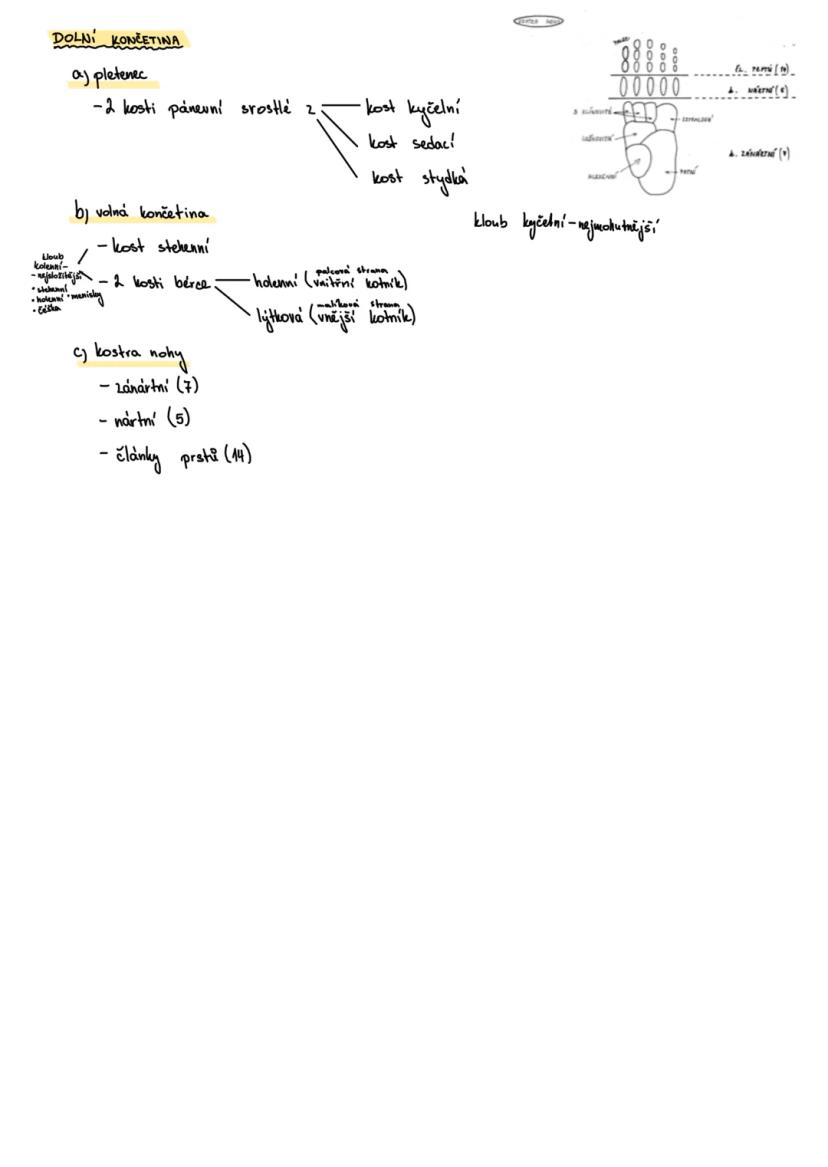 DOLNÍ KONČETINA
a) pletenec
- 2 kosti pánevní srostlé z
kost kyčelní
kost sedací
kost stydká
b) volná končetina
- kost stehenní
kloub
kolenní-
- nejsložitější
• stehenní
• holenní • menisky
• čéška
- 2 kosti bérce
palcová strana
holenní (vnitřní kotník)
malíková strana
lýtková (vnější kotník)
c) kostra nohy
- zánártní (7)
- nártní (5)
- články prstů (14)
KOSTRA NOHY
PALEC
ČL. PRSTŮ (14)
k. NÁRTNÍ (5)
3 KLÍNOVITÉ
k. ZÁNÁRTNÍ (7)
PATNÍ
kloub kyčelní - nejmohutnější